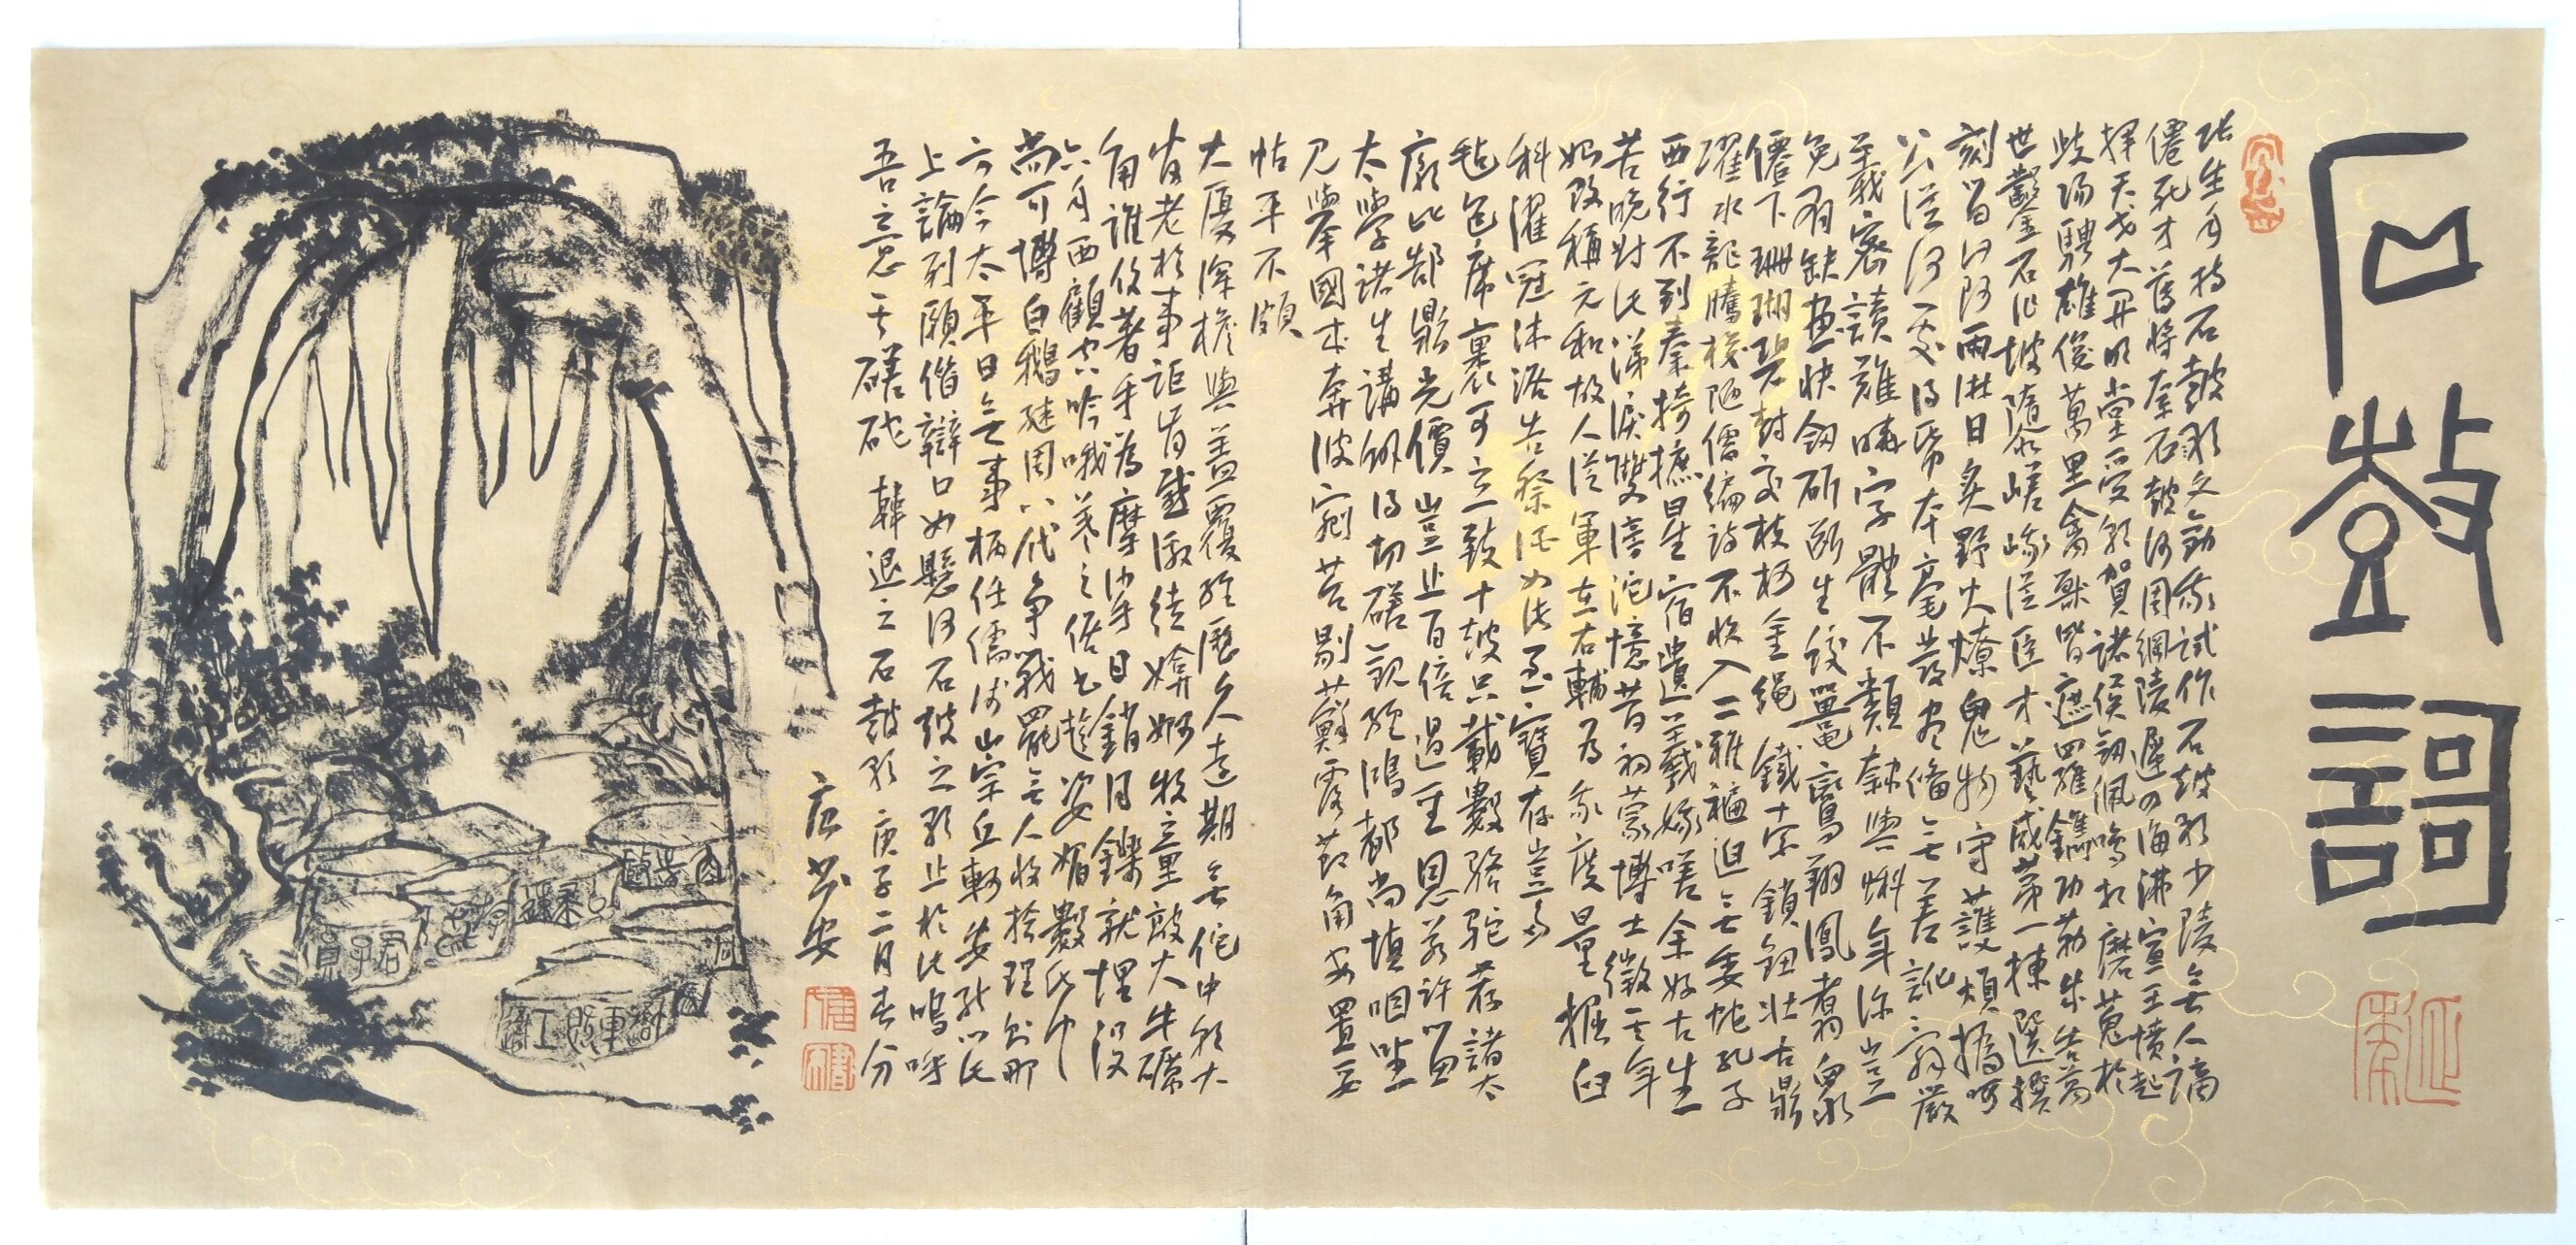 石鼓謌
張生手持石鼓歌文勸我試作石鼓歌少陵無人謫
僊死才薄將奈石鼓何周綱陵遲四海沸宣王憤起
揮天戈大開明堂受朝賀諸侯劒佩鳴相磨蒐於
岐陽騁雄俊萬里禽獸皆遮羅鐫功勒成告萬
世鑿石作鼓隳嵯峨從臣才藝咸第一揀選撰
刻留山阿雨淋日炙野火燎鬼物守護煩撝呵
公從何處得紙本毫髮盡備無差訛辭嚴
義密讀難曉字體不類隸與蝌年深豈
免有缺畫快劒斫斷生蛟鼉鸞翔鳳翥衆
僊下珊瑚碧樹交枝柯金繩鐵索鎖鈕壯古鼎
躍水龍騰梭陋儒編詩不收入二雅褊迫無委蛇孔子
西行不到秦掎摭星宿遺羲娥嗟余好古生
苦晚對此涕淚雙滂沱憶昔初蒙博士徵其年
始改稱元和故人從軍在右輔為我度量掘臼
科濯冠沐浴告祭酒如此至寶存豈多
氈包席裹可立致十鼓只載數駱駝薦諸太
廟比郜鼎光價豈止百倍過聖恩若許留
太學諸生講解得切磋觀經鴻都尚填咽坐
見舉國來奔波剜苔剔蘚露節角安置妥
帖平不頗
大厦深檐與蓋覆經歷久遠期無佗中朝大
官老於事詎肯感激徒媕婀牧童敲火牛礪
角誰復著手為摩挲日銷月鑠就埋沒
六年西顧空吟哦羲之俗書趁姿媚數紙
尚可博白鵝繼周八代爭戰罷無人收拾理則那
方今太平日無事柄任儒術崇丘軻安能以此
上論列願借辯口如懸河石鼓之歌止於此嗚呼
吾意其蹉跎 韓退之石鼓歌 庚子二月春分